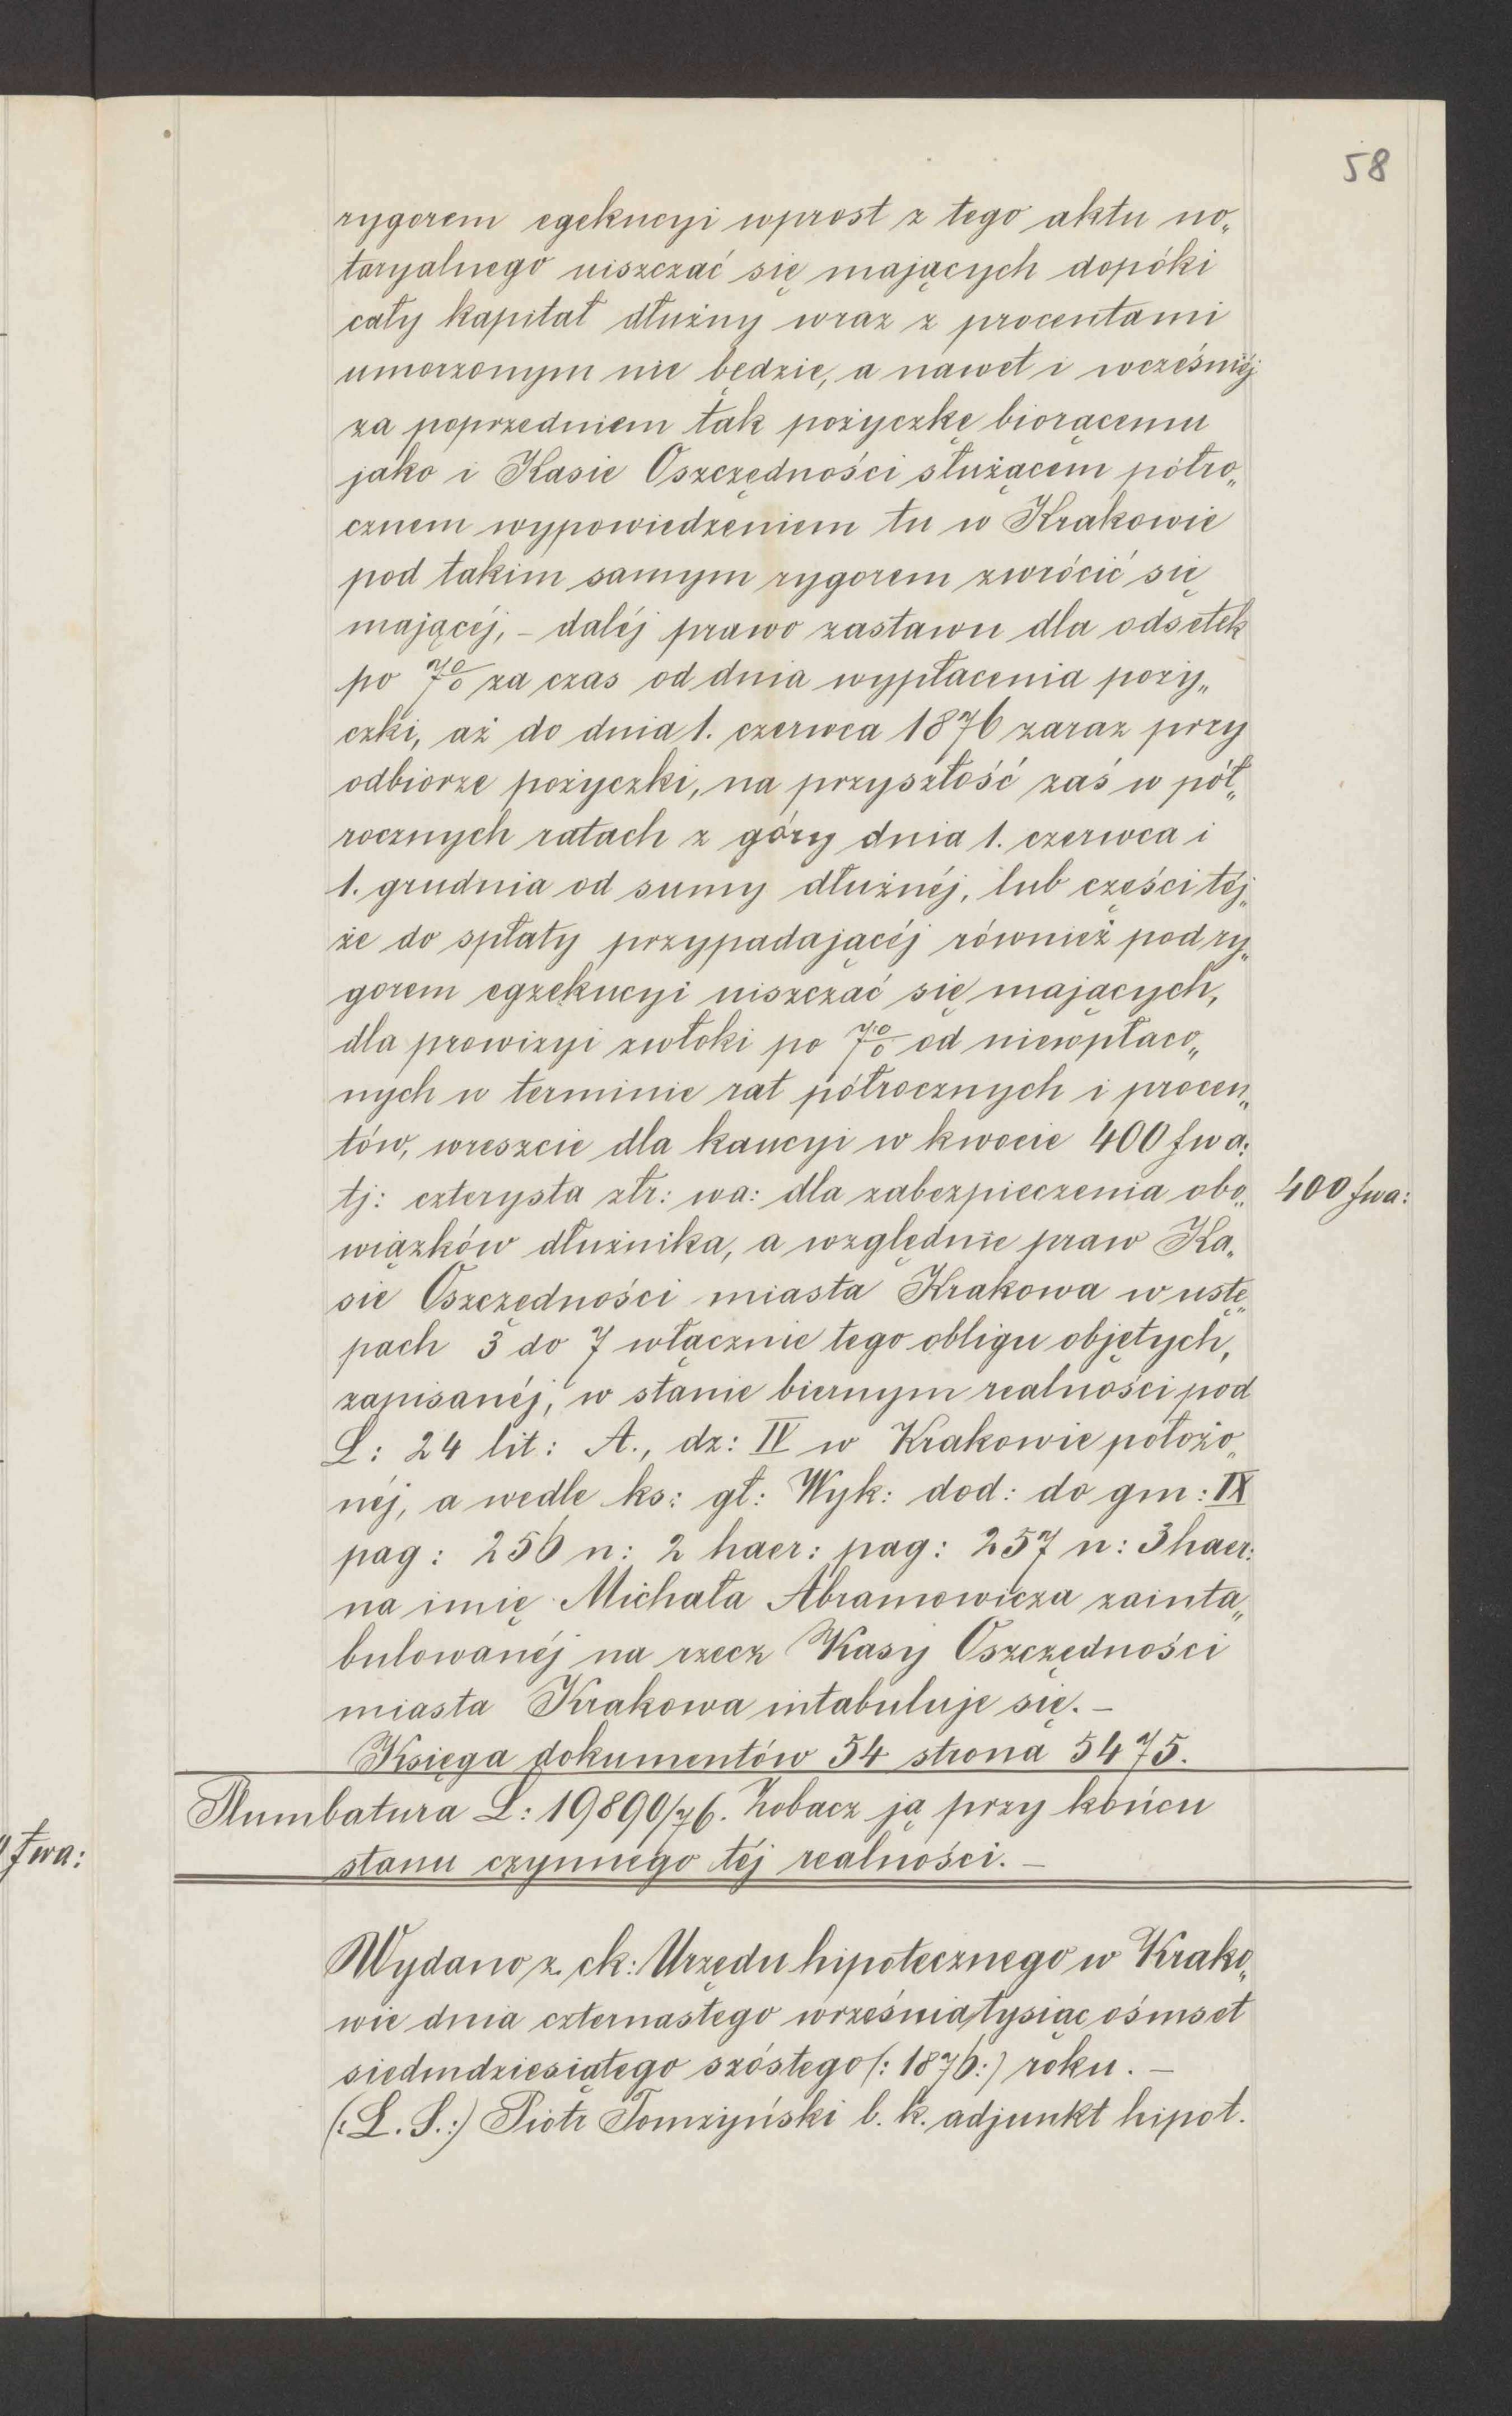 58
rygorem egekucyi wprost z tego aktu no„
taryalnego uiszczać się mających dopóki
cały kapitał dłużny wraz z procentami
umorzonym nie będzie, a nawet i wcześniéj
za poprzedniem tak pożyczkę biorącemu
jako i Kasie Oszczędności służącem półro„
cznem wypowiedzeniem tu w Krakowie
pod takim samym rygorem zwrócić się
mającéj, – daléj prawo zastawu dla odsetek
po 7% za czas od dnia wypłacenia poży„
czki, aż do dnia 1. czerwca 1876 zaraz przy
odbiorze pożyczki, na przyszłość zaś w pół„
rocznych ratach z góry dnia 1. czerwca i
1. grudnia od sumy dłużnéj, lub części téj„
że do spłaty przypadającéj również pod ry„
gorem egzekucyi uiszczać się mających,
dla prowizyi zwłoki po 7% od niewpłaco„
nych w terminie rat półrocznych i procen„
tów, wreszcie dla kaucyi w kwocie 400 f w a:
tj: czterysta złr: wa: dla zabezpieczenia obo„ 400 f wa:
wiązków dłużnika, a względnie praw Ka„
sie Oszczędności miasta Krakowa w ustę„
pach 3 do 7 włącznie tego obligu objętych,
zapisanéj, w stanie biernym realności pod
L: 24 lit: A., dz: IV w Krakowie położo„
néj, a wedle ks: gł: Wyk: dod: do gm: IX
pag: 256 n: 2 haer: pag: 257 n: 3 haer:
na imię Michała Abramowicza zainta„
bulowanéj na rzecz Kasy Oszczędności
miasta Krakowa intabuluje się. –
Księga dokumentów 54 strona 5475.
Plumbatura L: 19890/76. Zobacz ją przy końcu
stanu czynnego téj realności. –
f wa:
Wydano z ck: Urzędu hipotecznego w Krako„
wie dnia czternastego września tysiąc ośmset
siedmdziesiątego szóstego (: 1876 :) roku. –
(: L. S. :) Piotr Tomżyński b. k. adjunkt hipot.